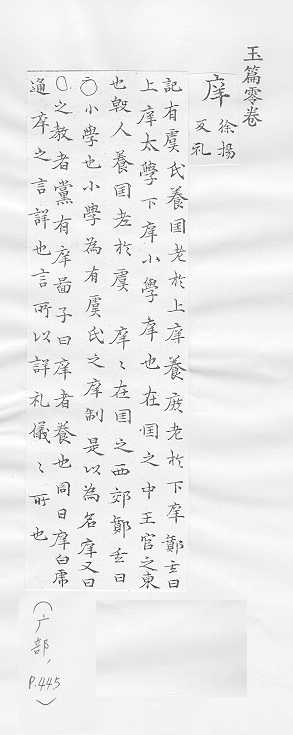 玉篇零卷
庠
徐揚
反礼
記有虞氏養囯老於上庠養庻老於下庠鄭玄曰
上庠太學下庠小學庠也在囯之中王宮之東
也殷人養囯老於虞庠〻在囯之西郊鄭玄曰
〇小學也小學為有虞氏之庠制是以為名庠又曰
〇之教者黨有庠孟子曰庠者養也同日庠白席
通庠之言詳也言所以詳礼儀〻所也
(广部,
P.445)